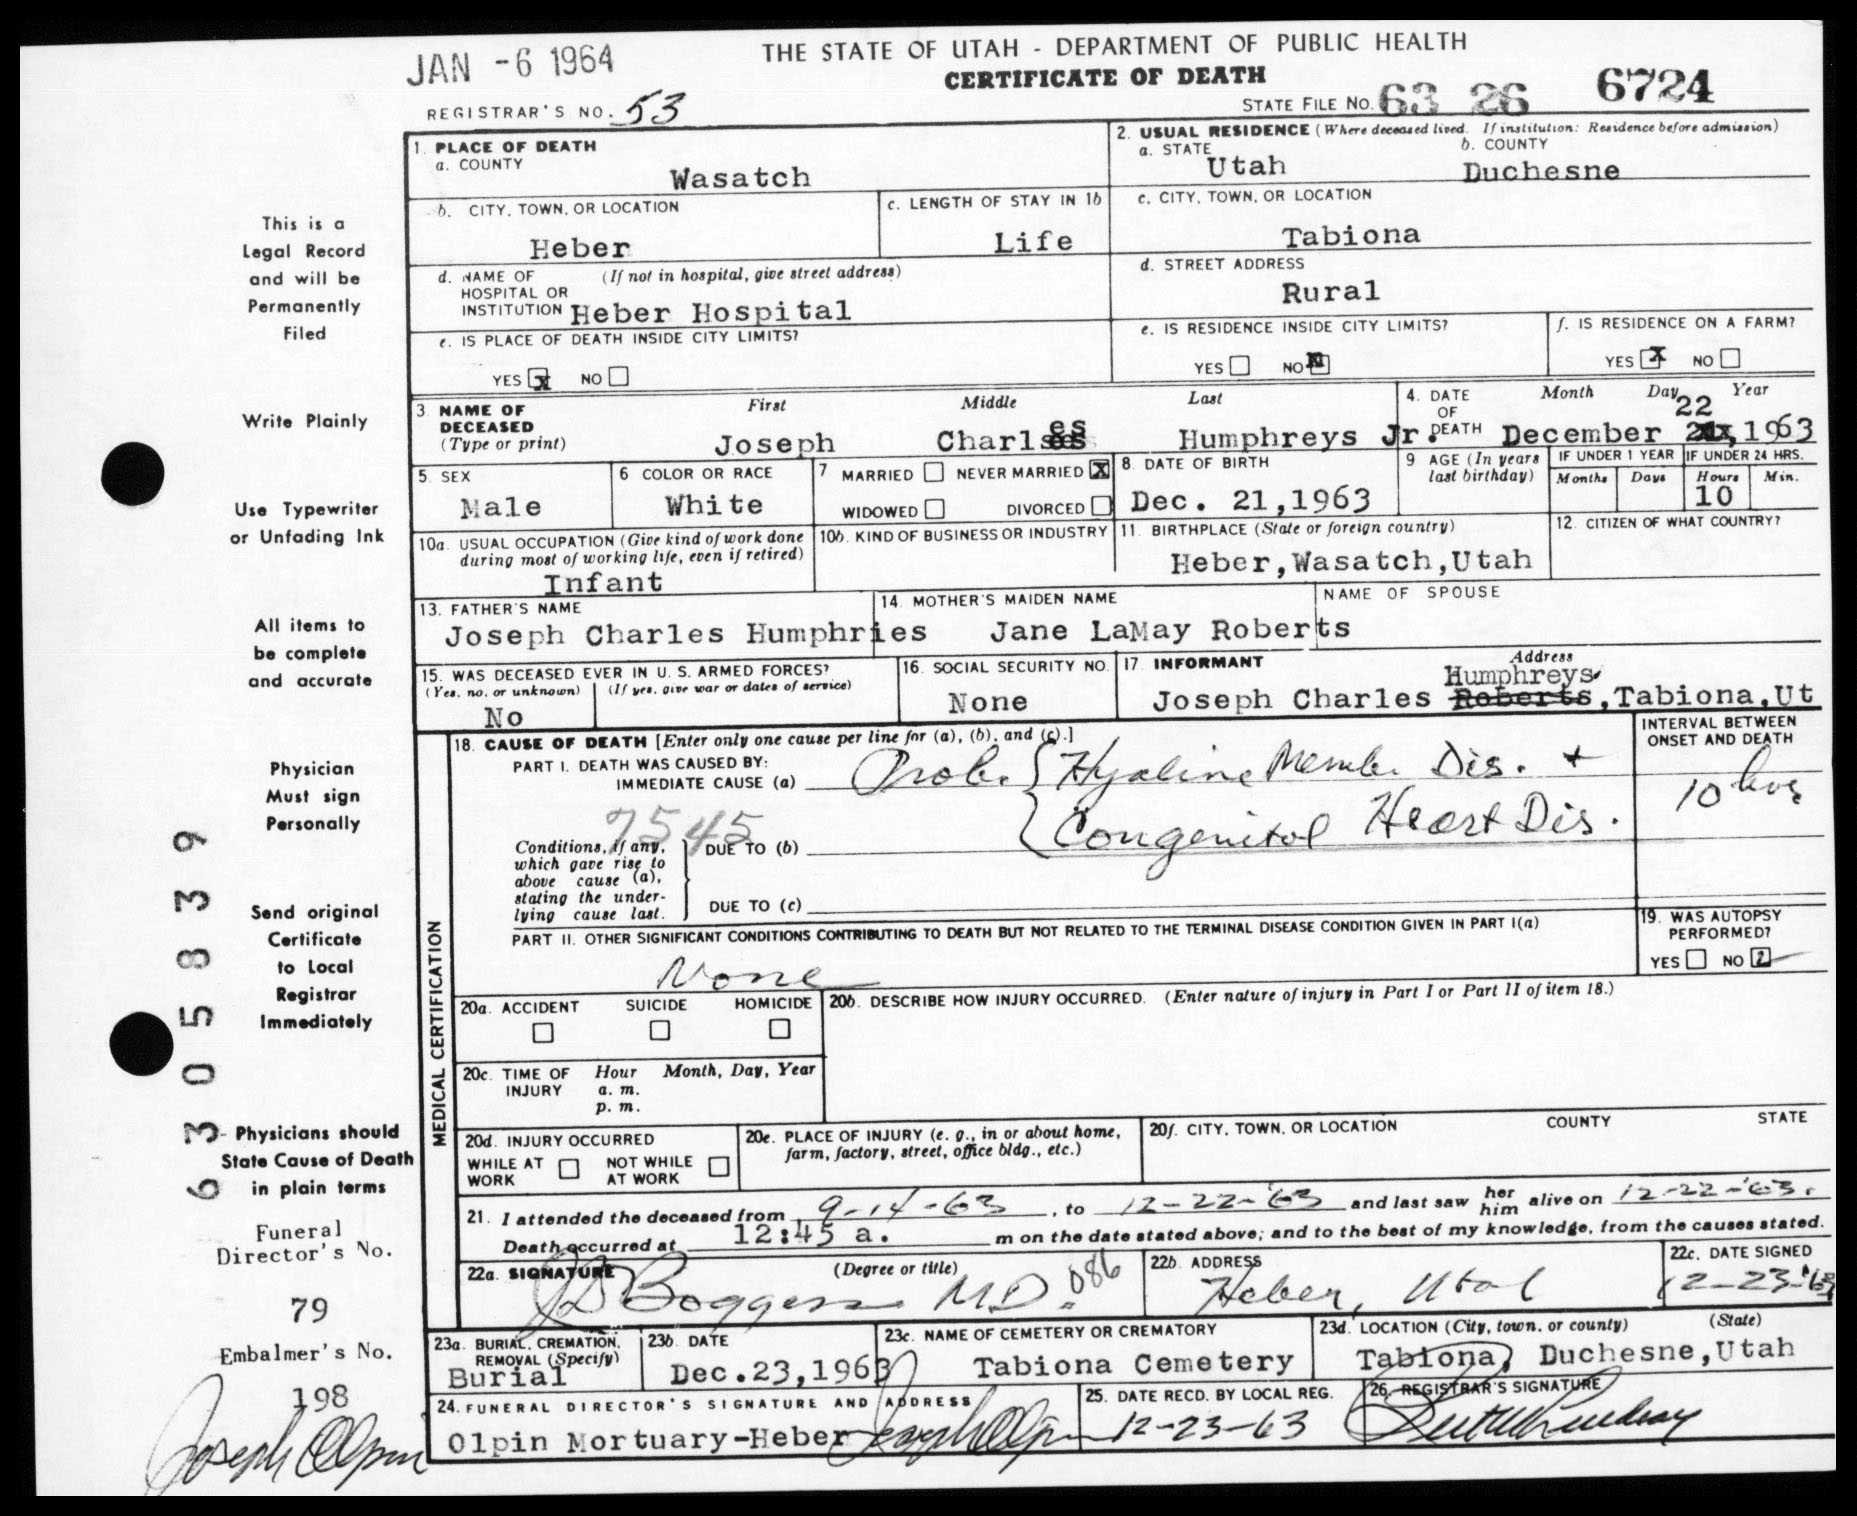 JAN -6 1964
THE STATE OF UTAH - DEPARTMENT OF PUBLIC HEALTH
CERTIFICATE OF DEATH
REGISTRAR'S NO. 53
STATE FILE NO. 63 26 6724
1. PLACE OF DEATH
a. COUNTY
Wasatch
2. USUAL RESIDENCE (Where deceased lived. If institution: Residence before admission)
a. STATE Utah
b. COUNTY Duchesne
b. CITY, TOWN, OR LOCATION
Heber
c. LENGTH OF STAY IN 1b
Life
c. CITY, TOWN, OR LOCATION
Tabiona
d. NAME OF (If not in hospital, give street address)
HOSPITAL OR
INSTITUTION Heber Hospital
d. STREET ADDRESS
Rural
e. IS PLACE OF DEATH INSIDE CITY LIMITS?
YES x NO
e. IS RESIDENCE INSIDE CITY LIMITS?
YES NO x
f. IS RESIDENCE ON A FARM?
YES x NO
3. NAME OF DECEASED (Type or print)
First Middle Last
Joseph Charles Humphreys Jr.
4. DATE OF DEATH
Month Day Year
December 22, 1963
5. SEX
Male
6 COLOR OR RACE
White
7 MARRIED NEVER MARRIED X
WIDOWED DIVORCED
8. DATE OF BIRTH
Dec. 21,1963
9 AGE (In years last birthday)
IF UNDER 1 YEAR
Months Days
IF UNDER 24 HRS.
Hours Min.
10
10a. USUAL OCCUPATION (Give kind of work done during most of working life, even if retired)
Infant
10b. KIND OF BUSINESS OR INDUSTRY
11. BIRTHPLACE (State or foreign country)
Heber,Wasatch,Utah
12. CITIZEN OF WHAT COUNTRY?
13. FATHER'S NAME
Joseph Charles Humphries
14. MOTHER'S MAIDEN NAME
Jane LaMay Roberts
NAME OF SPOUSE
15. WAS DECEASED EVER IN U. S. ARMED FORCES?
(Yes, no, or unknown) (If yes, give war or dates of service)
No
16. SOCIAL SECURITY NO.
None
17. INFORMANT Address
Humphreys
Joseph Charles Roberts,Tabiona,Ut
MEDICAL CERTIFICATION
18. CAUSE OF DEATH [Enter only one cause per line for (a), (b), and (c).]
PART I. DEATH WAS CAUSED BY:
IMMEDIATE CAUSE (a) Prob. Hyaline Membr. Dis. +
Congenital Heart Dis.
7545
Conditions, if any, which gave rise to above cause (a), stating the underlying cause last.
DUE TO (b)
DUE TO (c)
INTERVAL BETWEEN ONSET AND DEATH
10 hrs
PART II. OTHER SIGNIFICANT CONDITIONS CONTRIBUTING TO DEATH BUT NOT RELATED TO THE TERMINAL DISEASE CONDITION GIVEN IN PART I(a)
None
19. WAS AUTOPSY PERFORMED?
YES NO
20a. ACCIDENT SUICIDE HOMICIDE
20b. DESCRIBE HOW INJURY OCCURRED. (Enter nature of injury in Part I or Part II of item 18.)
20c. TIME OF INJURY
Hour Month, Day, Year
a. m.
p. m.
20d. INJURY OCCURRED
WHILE AT WORK NOT WHILE AT WORK
20e. PLACE OF INJURY (e. g., in or about home, farm, factory, street, office bldg., etc.)
20f. CITY, TOWN, OR LOCATION COUNTY STATE
21. I attended the deceased from 9-14-63, to 12-22-'63 and last saw her him alive on 12-22-'63.
Death occurred at 12:45 a. m on the date stated above; and to the best of my knowledge, from the causes stated.
22a. SIGNATURE (Degree or title)
Boggess M.D. 086
22b. ADDRESS
Heber, Utah
22c. DATE SIGNED
12-23-'63
23a. BURIAL, CREMATION, REMOVAL (Specify)
Burial
23b. DATE
Dec.23,1963
23c. NAME OF CEMETERY OR CREMATORY
Tabiona Cemetery
23d. LOCATION (City, town, or county) (State)
Tabiona, Duchesne,Utah
24. FUNERAL DIRECTOR'S SIGNATURE AND ADDRESS
Olpin Mortuary-Heber Joseph Olpin
25. DATE RECD. BY LOCAL REG.
12-23-63
26. REGISTRAR'S SIGNATURE
This is a
Legal Record
and will be
Permanently
Filed
Write Plainly
Use Typewriter
or Unfading Ink
All items to
be complete
and accurate
Physician
Must sign
Personally
Send original
Certificate
to Local
Registrar
Immediately
Physicians should
State Cause of Death
in plain terms
Funeral
Director's No.
79
Embalmer's No.
198
Joseph Olpin
6305839